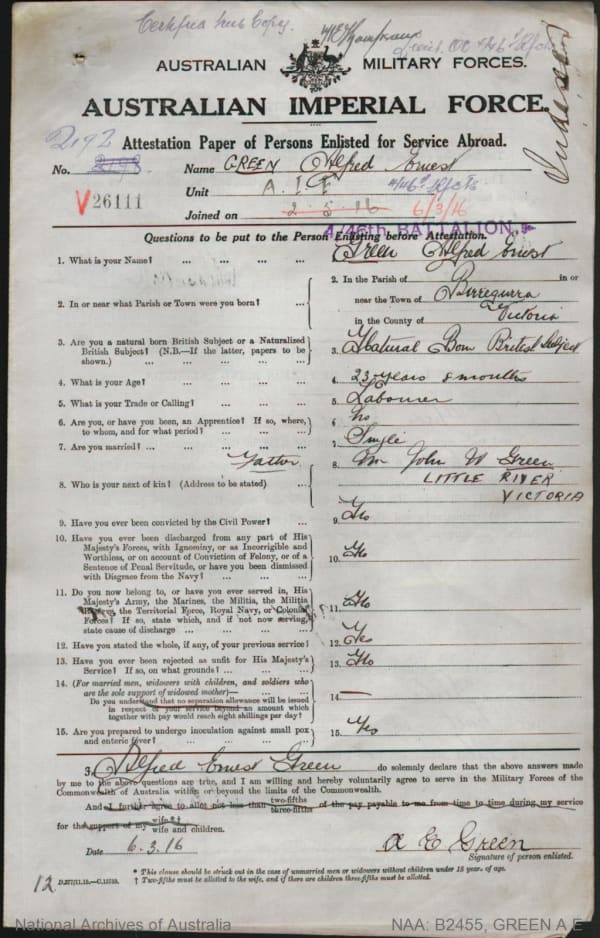 Certified true Copy.
AUSTRALIAN MILITARY FORCES.
AUSTRALIAN IMPERIAL FORCE.
Attestation Paper of Persons Enlisted for Service Abroad.
2192
No. Name GREEN Alfred Ernest
V 26111
Unit A. I F 4/46th Rfcts
Joined on 2 5 16 6/3/16
4/46th BATTALION,
Questions to be put to the Person Enlisting before Attestation.
1. What is your Name? ... ... ... ... Green Alfred Ernest
2. In or near what Parish or Town were you born? ... 2. In the Parish of Birregurra in or
near the Town of
in the County of Victoria
3. Are you a natural born British Subject or a Naturalized British Subject? (N.B.—If the latter, papers to be shown.) ... ... 3. Natural Born British Subject
4. What is your Age? ... ... ... ... 4. 23 years 8 months
5. What is your Trade or Calling? ... ... ... 5. Labourer
6. Are you, or have you been, an Apprentice? If so, where, to whom, and for what period? ... ... 6. No
7. Are you married? ... ... ... ... 7. Single
Father
8. Who is your next of kin? (Address to be stated) ... 8. Mr John W Green
LITTLE RIVER
VICTORIA
9. Have you ever been convicted by the Civil Power? ... 9. No
10. Have you ever been discharged from any part of His Majesty's Forces, with Ignominy, or as Incorrigible and Worthless, or on account of Conviction of Felony, or of a Sentence of Penal Servitude, or have you been dismissed with Disgrace from the Navy? ... ... 10. No
11. Do you now belong to, or have you ever served in, His Majesty's Army, the Marines, the Militia, the Militia Reserve, the Territorial Force, Royal Navy, or Colonial Forces? If so, state which, and if not now serving, state cause of discharge ... ... 11. No
12. Have you stated the whole, if any, of your previous service? 12. Yes
13. Have you ever been rejected as unfit for His Majesty's Service? If so, on what grounds? ... ... 13. No
14. (For married men, widowers with children, and soldiers who are the sole support of widowed mother)—
Do you understand that no separation allowance will be issued in respect of your service beyond an amount which together with pay would reach eight shillings per day? 14. —
15. Are you prepared to undergo inoculation against small pox and enteric fever? ... ... 15. Yes
3, Alfred Ernest Green do solemnly declare that the above answers made
by me to the above questions are true, and I am willing and hereby voluntarily agree to serve in the Military Forces of the
Commonwealth of Australia within or beyond the limits of the Commonwealth.
And I further agree to allot not less than two-fifths three-fifths of the pay payable to me from time to time during my service
for the support of my wife * † wife and children.
Date 6. 3. 16 A E Green
Signature of person enlisted.
* This clause should be struck out in the case of unmarried men or widowers without children under 18 years of age.
† Two-fifths must be allotted to the wife, and if there are children three-fifths must be allotted.
12
National Archives of Australia NAA: B2455, GREEN A E